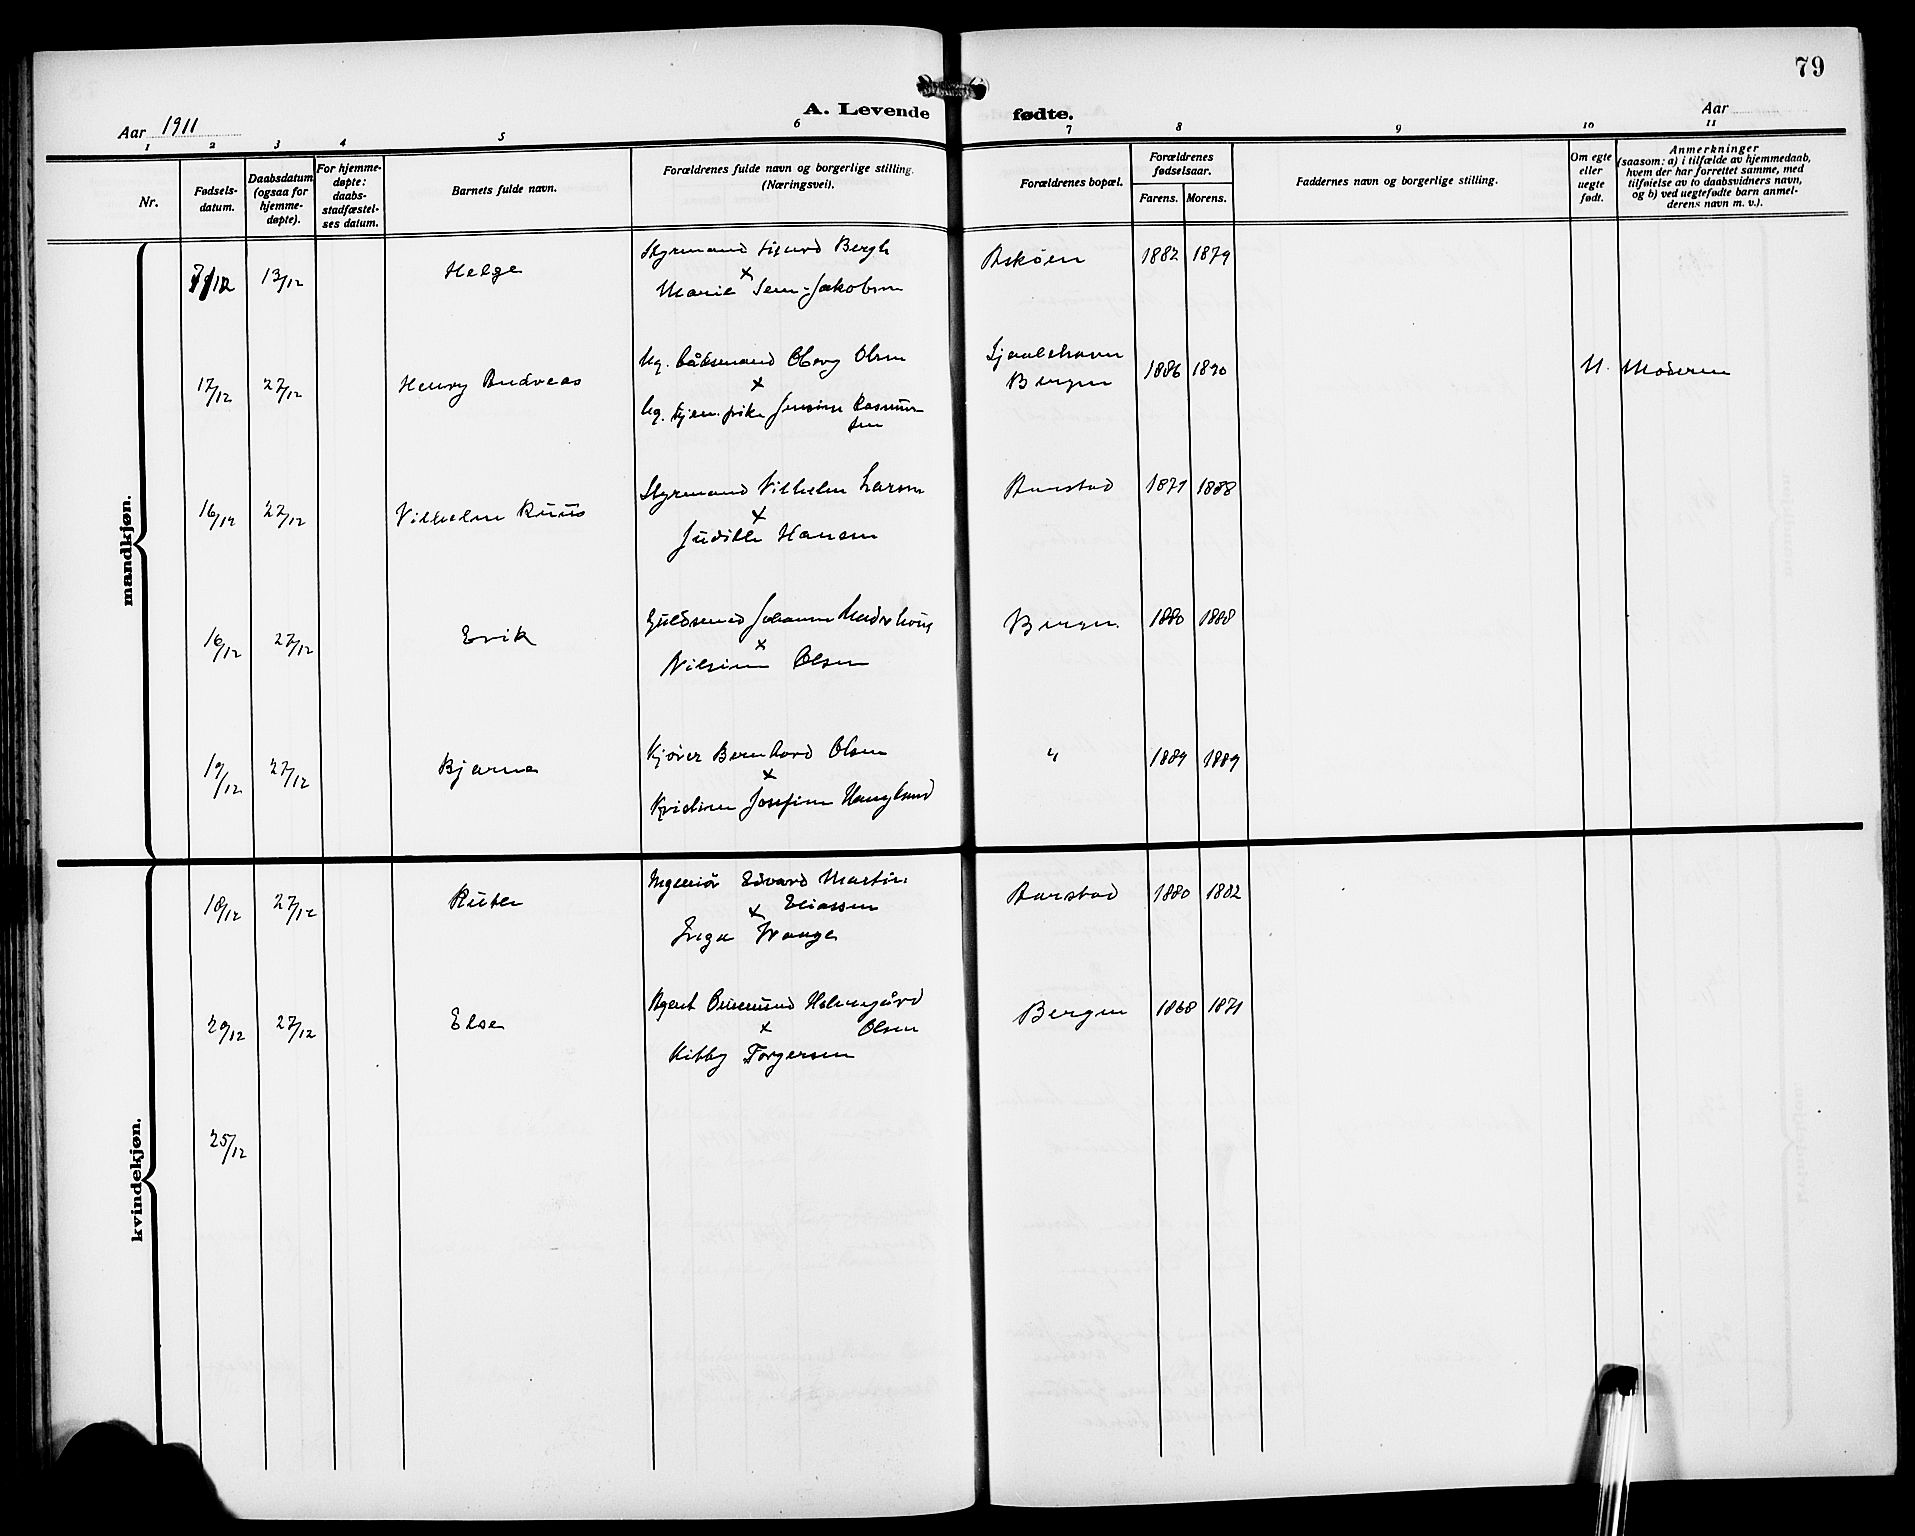 79
A. Levende fødte.
Aar 1911
Aar
1 2 3 4 5 6 7 8 9 10 11
Nr.
Fødsels-
datum.
Daabsdatum
(ogsaa for
hjemme-
døpte).
For hjemme-
døpte:
daabs-
stadfæstel-
ses datum.
Barnets fulde navn.
Forældrenes fulde navn og borgerlige stilling.
(Næringsvei).
Forældrenes bopæl.
Forældrenes
fødselsaar.
Farens. Morens.
Faddernes navn og borgerlige stilling.
Om egte
eller
uegte
født.
Anmerkninger
(saasom: a) i tilfælde av hjemmedaab,
hvem der har forrettet samme, med
tilføielse av to daabsvidners navn,
og b) ved uegtefødte barn anmel-
derens navn m. v.).
mandkjøn.
13/12 Helge Styrmand Sigurd Bergh Askøen 1882 1879
x
Marie Sem-Jakobsen
17/12 27/12 Henry Andreas Ug. Olsen Bergen 1886 1890 U. Moderen
x
Ug. tjen. pike Jensine Rasmus-
sen
16/12 27/12 Vilhelm Ruus Styrmand Vilhelm Larsen Aarstad 1888
x
Judith Hansen
16/12 27/12 Erik Guldsmed Johannes Bergen. 1880 1888
x
Nilsine Olsen
19/12 27/12 Bjarne Kjører Bernhard Olsen " 1889 1889
x
Josefine Haugland
kvindekjøn.
18/12 27/12 Ruth Ingeniør Edvard Martin Aarstad 1880 1882
x Eliassen
Inga Waage
20/12 27/12 Else Agent Holmegård Bergen 1868 1871
x Olsen
Kitty Torgersen
25/12